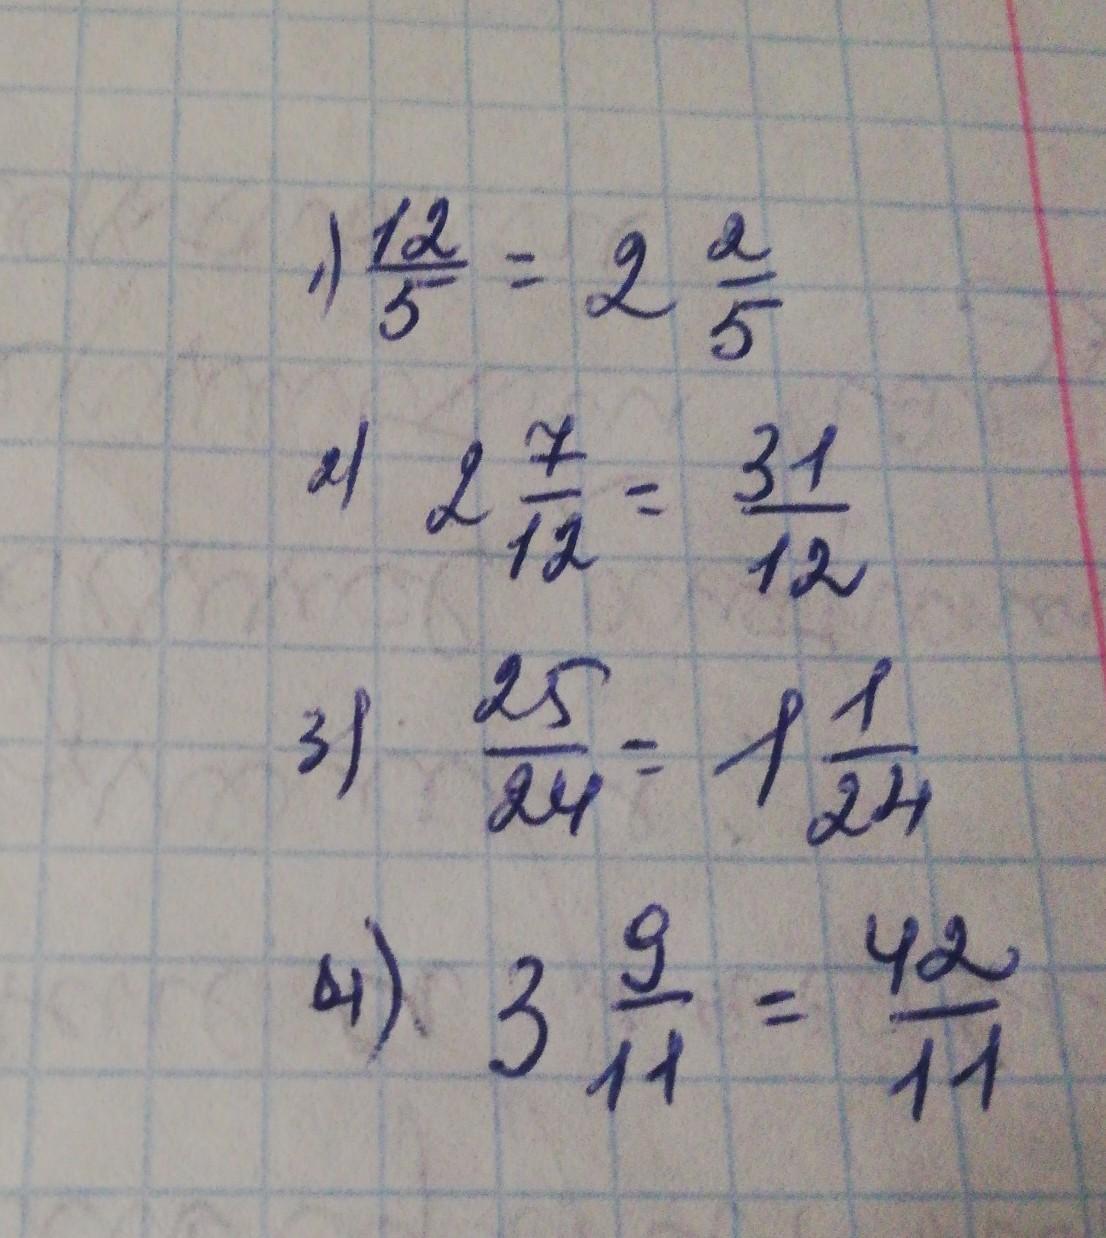 1) 12/5 = 2 2/5
2) 2 7/12 = 31/12
3) 25/24 = 1 1/24
4) 3 9/11 = 42/11